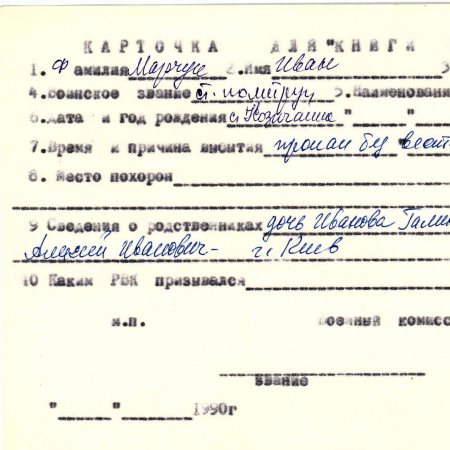 КАРТОЧКА ДЛЯ "КНИГИ
1. Фамилия Марчук 2. Имя Иван 3
4. Воинское звание ст. политрук 5. Наименовани
6. Дата и год рождения с. Козичанка " "
7. Время и причина выбытия пропал без вест
8. Место похорон
9 Сведения о родственниках дочь Иванова Гали
Алексей Иванович - г. Киев
10 Каким РВК призывался
м.п. Военный комисс
звание
" " 1990г